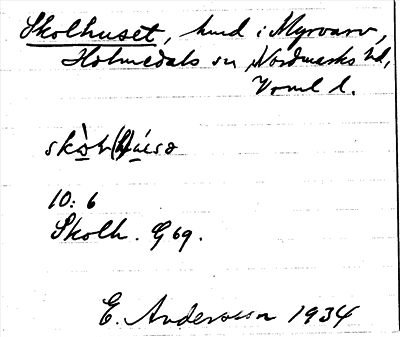 Skolhuset, hmd i Myrvarv,
Holmedals sn, Nordmarks hd,
Värml l.
skò̱l(h)úsə
10: 6
Skolh. G 69.
E. Andersson 1934